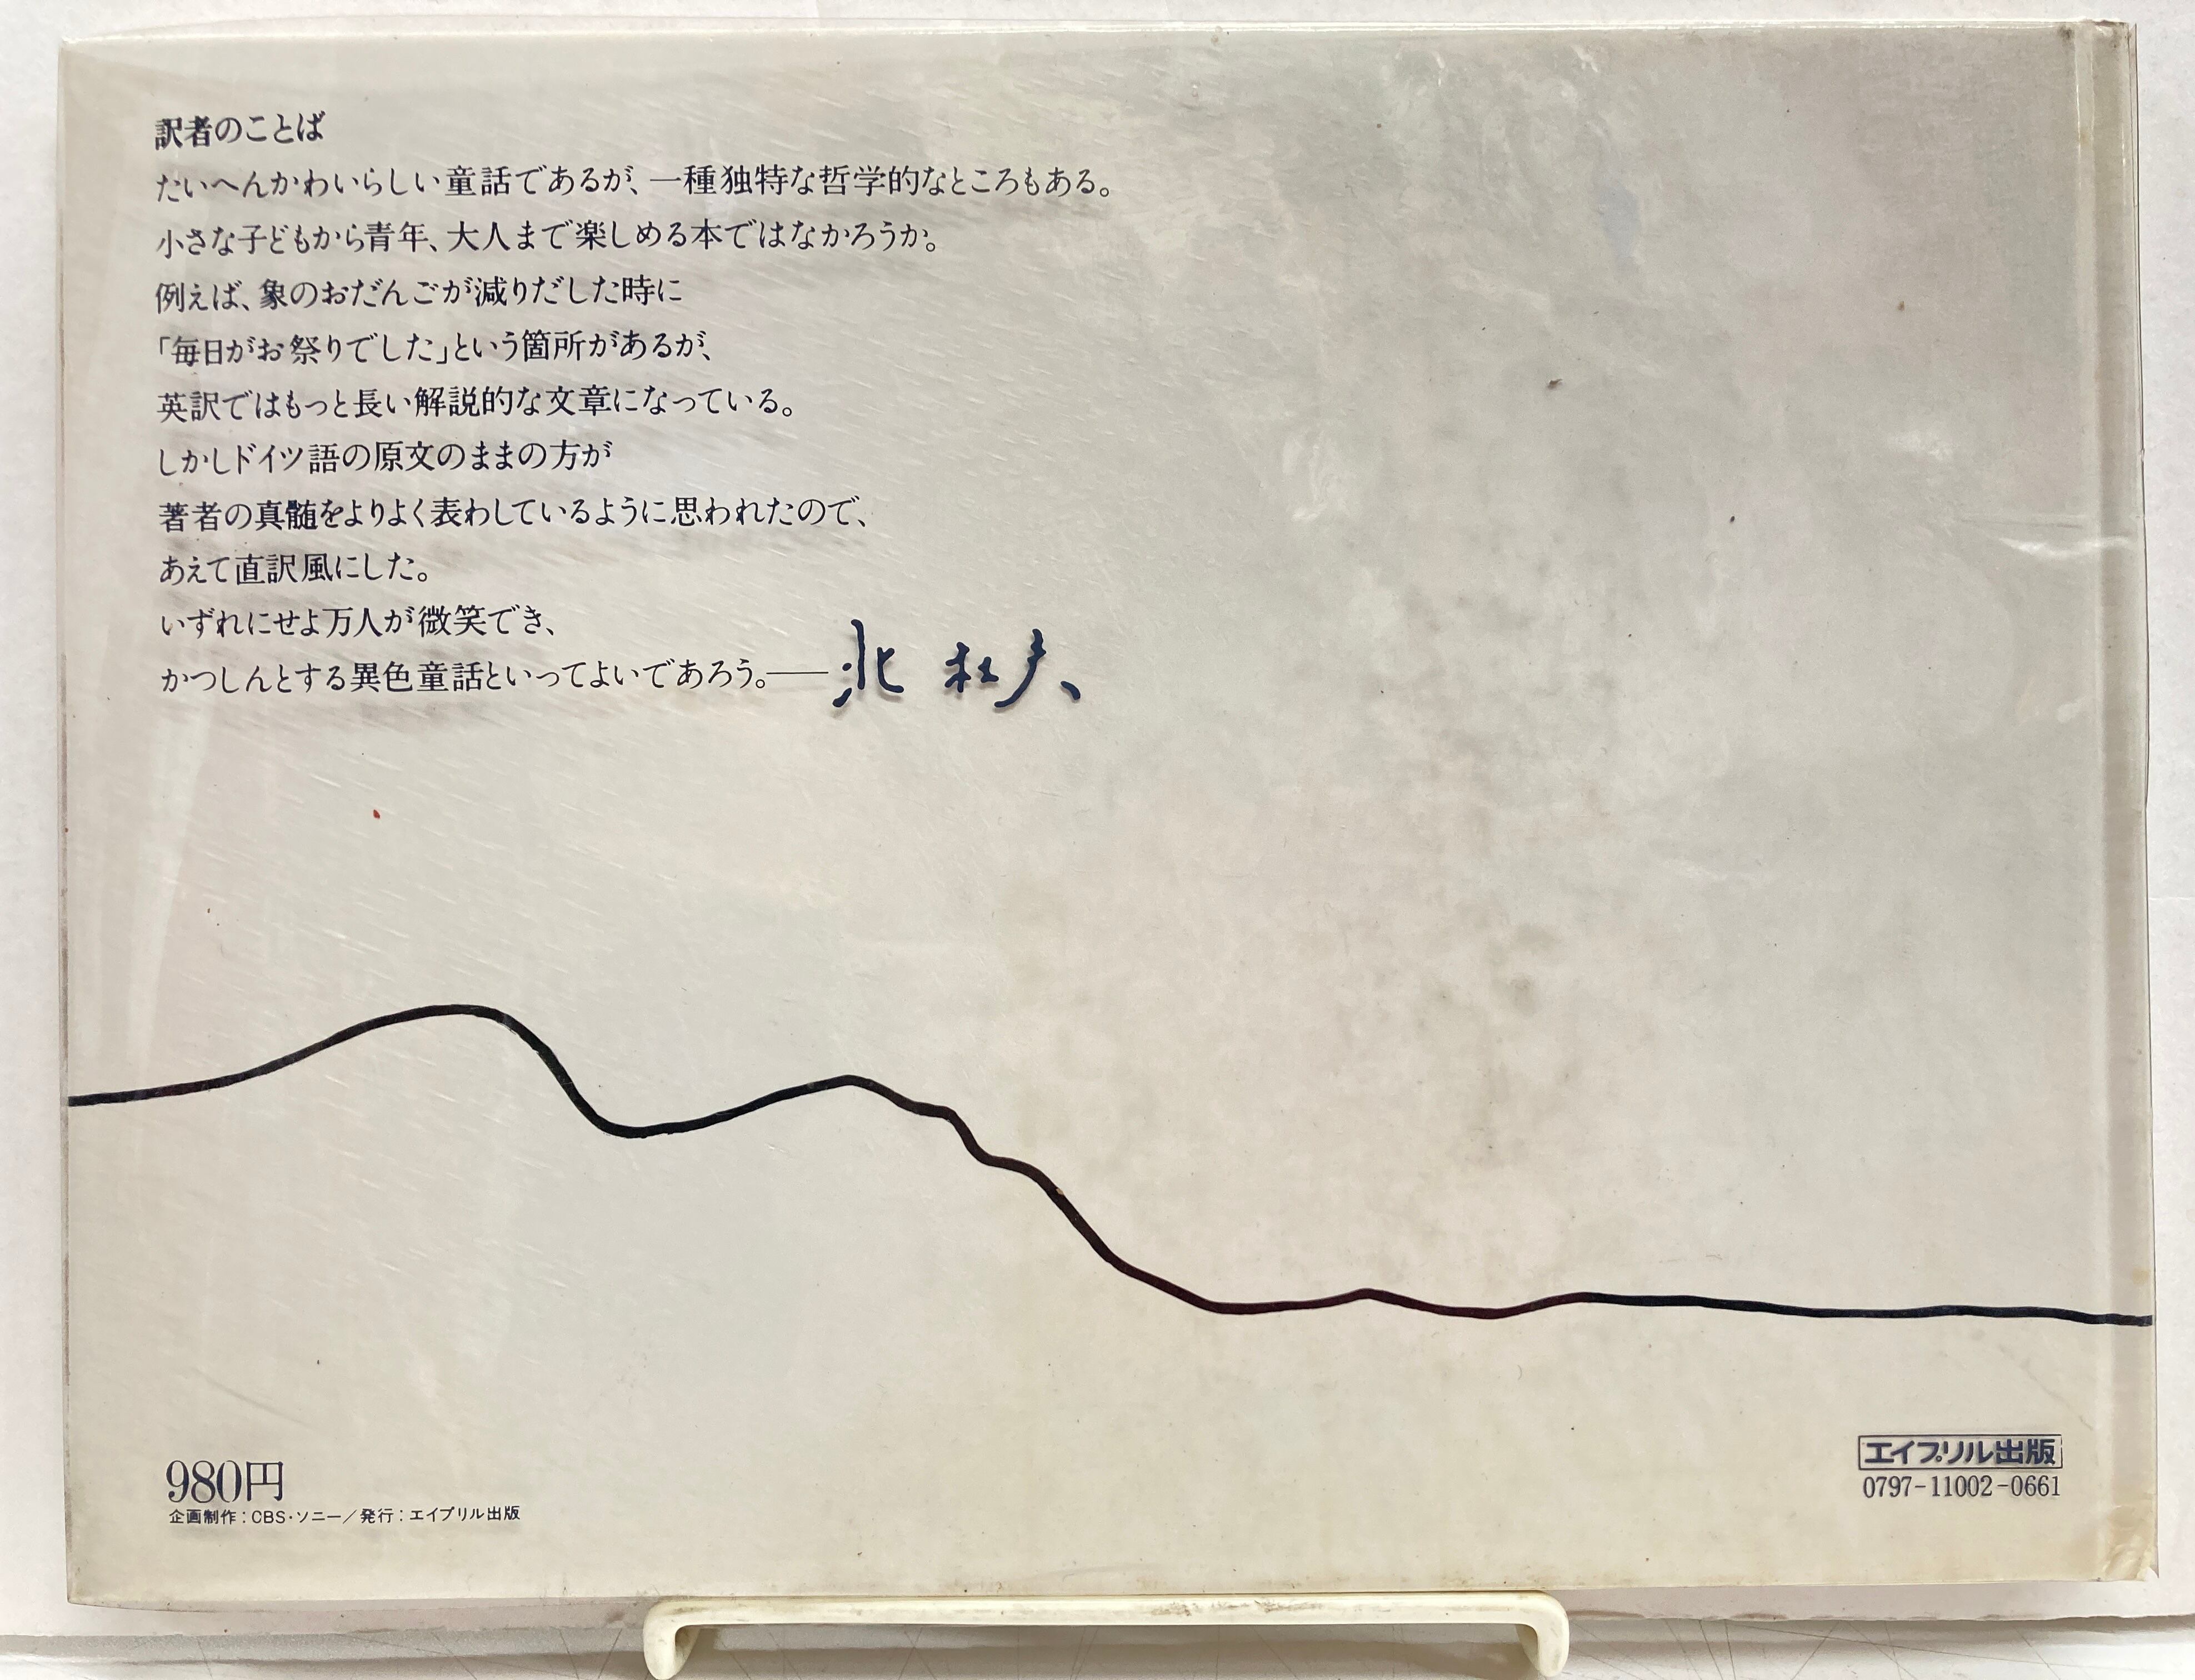 訳者のことば
たいへんかわいらしい童話であるが、一種独特な哲学的なところもある。
小さな子どもから青年、大人まで楽しめる本ではなかろうか。
例えば、象のおだんごが減りだした時に
「毎日がお祭りでした」という箇所があるが、
英訳ではもっと長い解説的な文章になっている。
しかしドイツ語の原文のままの方が
著者の真髄をよりよく表わしているように思われたので、
あえて直訳風にした。
いずれにせよ万人が微笑でき、
かつしんとする異色童話といってよいであろう。――北 杜夫
980円
企画制作：CBS・ソニー／発行：エイプリル出版
エイプリル出版
0797-11002-0661